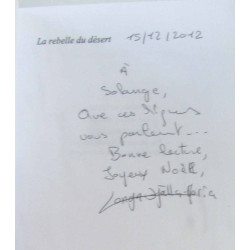 La rebelle du désert 15/12/2012
À
Solange,
Que ces lignes
vous parlent...
Bonne lecture,
Joyeux Noël,